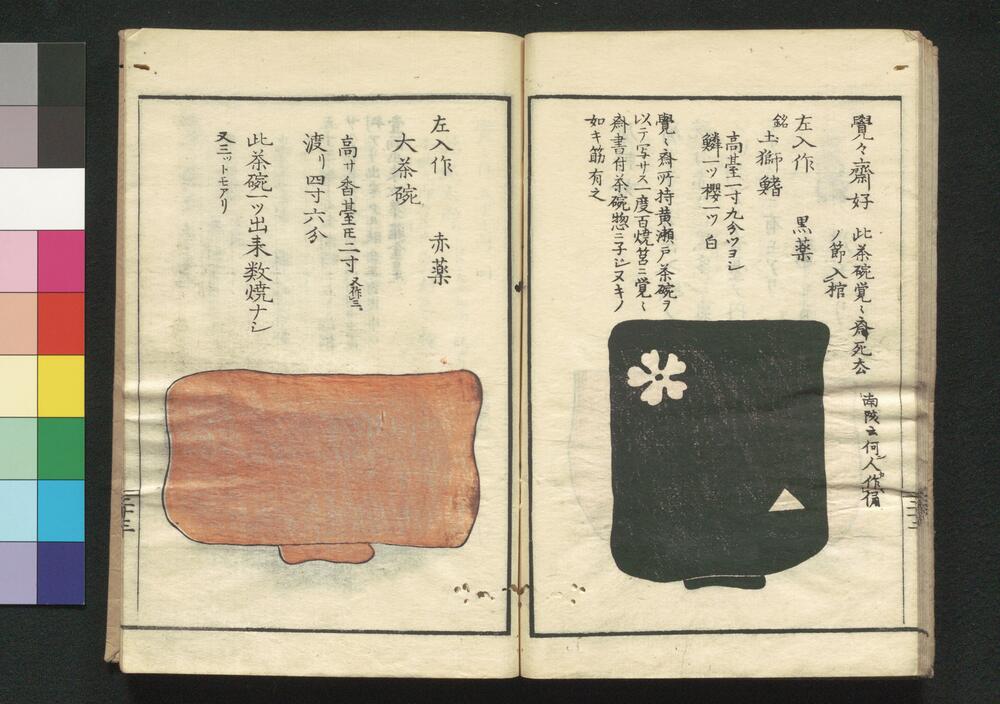 覺々齋好 此茶碗覚〻斎死去
ノ節入棺
南陔云何人作
左入作 黒薬
銘 土獅鰭
高䑓一寸九分ツヨシ
鱗一ツ櫻一ツ白
覺〻斎所持黄瀬戸茶碗ヲ
以テ写サス一度百焼筥ニ覚〻
斎書付茶碗惣ニ子シヌキノ
如キ筋有之
左入作 赤薬
大茶碗
高サ香䑓正二寸 又作三
渡リ四寸六分
此茶碗一ツ出来数焼ナシ
又三ットモアリ